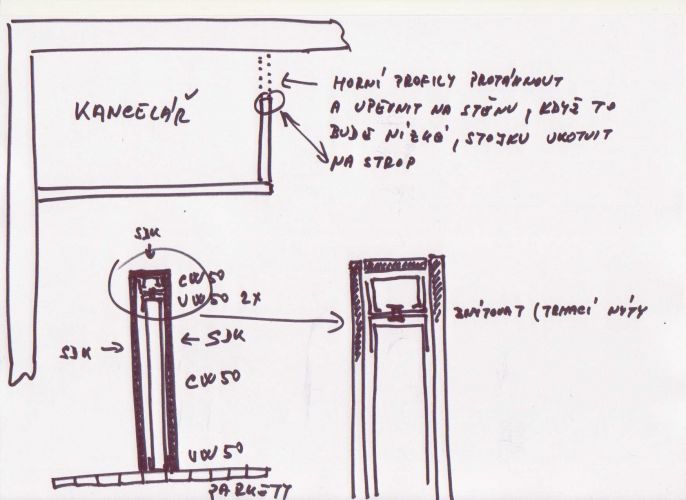 KANCELÁŘ
HORNÍ PROFILY PROTÁHNOUT
A UPEVNIT NA STĚNU, KDYŽ TO
BUDE NÍZKÉ, STOJKU UKOTVIT
NA STROP
SDK
CW50
UW50 2X
SDK
SDK
CW50
UW50
PARKETY
ZNÝTOVAT (TRHACÍ NÝTY